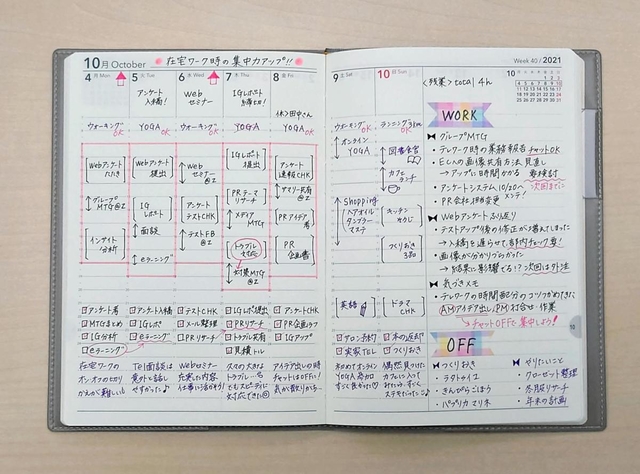 10月 October
在宅ワーク時の集中力アップ!!
4 Mon
5 Tue
6 Wed
7 Thu
8 Fri
アンケート
入稿!
Web
セミナー
IGレポート
休)田中さん
ウォーキング OK
YOGA OK
ウォーキング OK
YOGA
YOGA OK
Webアンケート
グループ
MTG@Z
インサイト
分析
Webアンケート
提出
IG
レポート
面談
eラーニング
Web
セミナー
@Z
アンケート
テストCHK
テストFB
@Z
IGレポート
提出
PRテーマ
リサーチ
メディア
MTG
トラブル
対応
対策MTG
@Z
アンケート
速報CHK
サマリー共有
@Z
PRアイデア
考
PR
企画書
アンケート考
MTGまとめ
IG分析
eラーニング
アンケート入稿
IGレポ
eラーニング
テストCHK
メール整理
PRリサーチ
IGレポ提出
PRリサーチ
トラブル共有
見積トル
アンケートCHK
PR企画ラフ
IGアップ
在宅ワークの
オンオフの切り
かえが難しい
Tel面談は
意外と話し
やすかった♪
Webセミナー
充実した内容
仕事に活かそう
対応できた
アイデア出しの時
チャットはOFFに!
気が散りがち…
9 Sat
10 Sun
Week 40 / 2021
10月
<残業> total 4h
ウォーキング OK
オンライン
YOGA
Shopping
ヘアオイル
タンブラー
マステ
英語
ランニング3km OK
図書館
カフェ
ランチ
キッチン
そうじ
つくりおき
3品
ドラマ
CHK
アロン予約
実家TEL
本の返却
つくりおき
初めてオンライン
YOGA参加
すごく良かった♡
偶然見つけた
カフェに入って
ステキだった♪
WORK
グループMTG
・テレワーク時の業務報告 チャットOK
・ECAの画像共有方法 見直し
→アップに時間かかる 要検討
・アンケートシステム10/20へ 次回までに
・PR会社担当変更 メンテ!
Webアンケートふり返り
・テストアップ後の修正が増えてしまった
→入稿を遅らせて、部内チェック要!
・画像が分かりづらかった
→結果に影響でる!?次回は外注
気づきメモ
・テレワークの時間配分のコツつかめてきた
AMアイデア出し、PM打合せ・作業
→チャットOFFで集中しよう!
OFF
つくりおき
・ラタトゥイユ
・きんぴらごぼう
・パプリカマリネ
やりたいこと
・クローゼット整理
・冬服リサーチ
・年末の計画
10